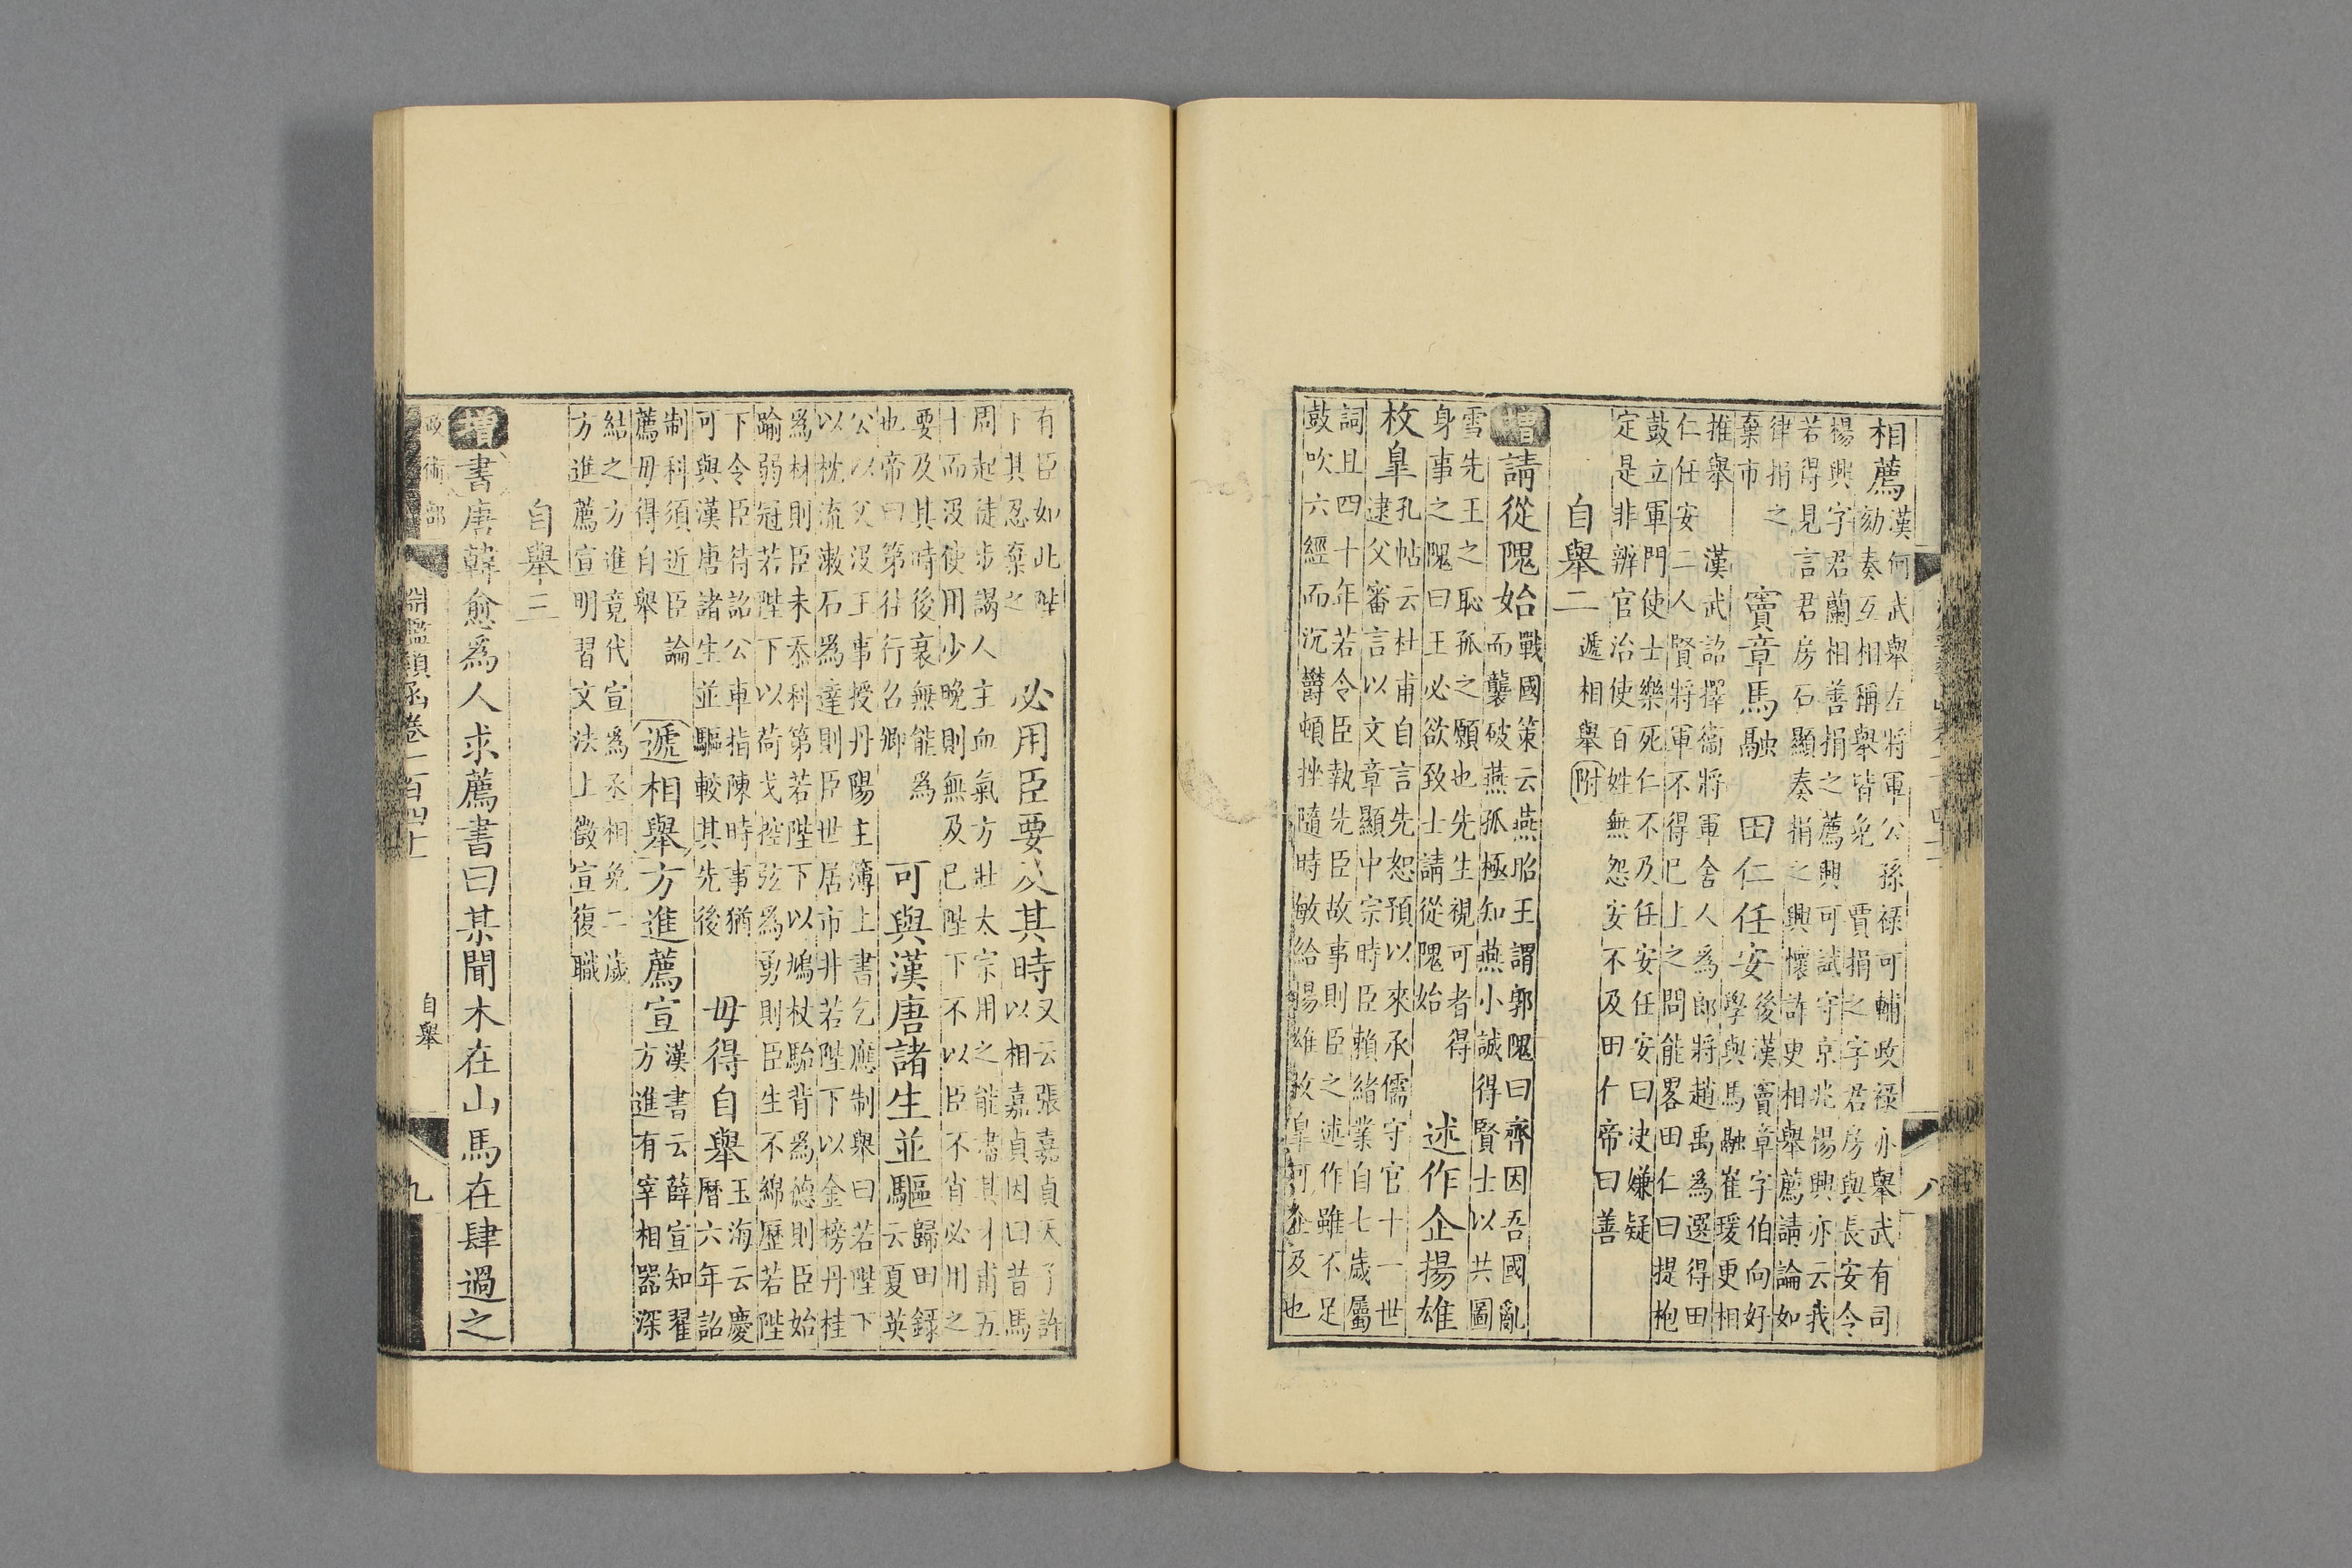 相薦
漢何武舉左將軍公孫祿可輔政祿亦舉武有司
劾奏互相稱舉皆免　賈捐之字君房與長安令
楊興字君蘭相善捐之薦興可試守京兆楊興亦云我
若得見言君房石顯奏捐之興懷許史相舉薦請論如
律捐之
棄市
竇章馬融　田仁任安
後漢竇章字伯向好
學與馬融崔瑗更相
推舉　漢武詔擇衞將軍舍人為郎將趙禹為選得田
仁任安二人賢將軍不得已上之問能畧田仁曰提枹
鼓立軍門使士樂死仁不及任安任安曰決嫌疑
定是非辨官治使百姓無怨安不及田仁帝曰善
自舉二　遞相舉附
增請從隗始
戰國策云燕昭王謂郭隗曰齊因吾國亂
而襲破燕孤極知燕小誠得賢士以共圖
雪先王之恥孤之願也先生視可者得
身事之隗曰王必欲致士請從隗始
述作企揚雄
枚皐
孔帖云杜甫自言先恕預以來承儒守官十一世
逮父審言以文章顯中宗時臣賴緒業自七歲屬
詞且四十年若令臣執先臣故事則臣之述作雖不足
鼓吹六經而沉鬱頓挫隨時敏給揚雄枚皐可企及也
八
有臣如此陛
下其忍棄之
必用臣要及其時
又云張嘉貞天子許
以相嘉貞因曰昔馬
周起徒步謁人主血氣方壯太宗用之能盡其才甫五
十而沒使用少晚則無及已陛下不以臣不肖必用之
要及其時後衰無能為
也帝曰第往行召卿
可與漢唐諸生並驅
歸田錄
云夏英
公以父沒王事授丹陽主簿上書乞應制舉曰若陛下
以枕流漱石為達則臣世居市井若陛下以金榜丹桂
為材則臣未忝科第若陛下以鳩杖駘背為德則臣始
踰弱冠若陛下以荷戈控弦為勇則臣生不綿歷若陛
下令臣待詔公車指陳時事猶
可與漢唐諸生並驅較其先後
毋得自舉
玉海云慶
曆六年詔
制科須近臣論
薦毋得自舉
遞相舉　方進薦宣
漢書云薛宣知翟
方進有宰相器深
結之方進竟代宣為丞相免二歲
方進薦宣明習文法上徵宣復職
自舉三
增書唐韓愈為人求薦書曰某聞木在山馬在肆過之
政術部　淵鑑類函卷一百四十　自舉　九